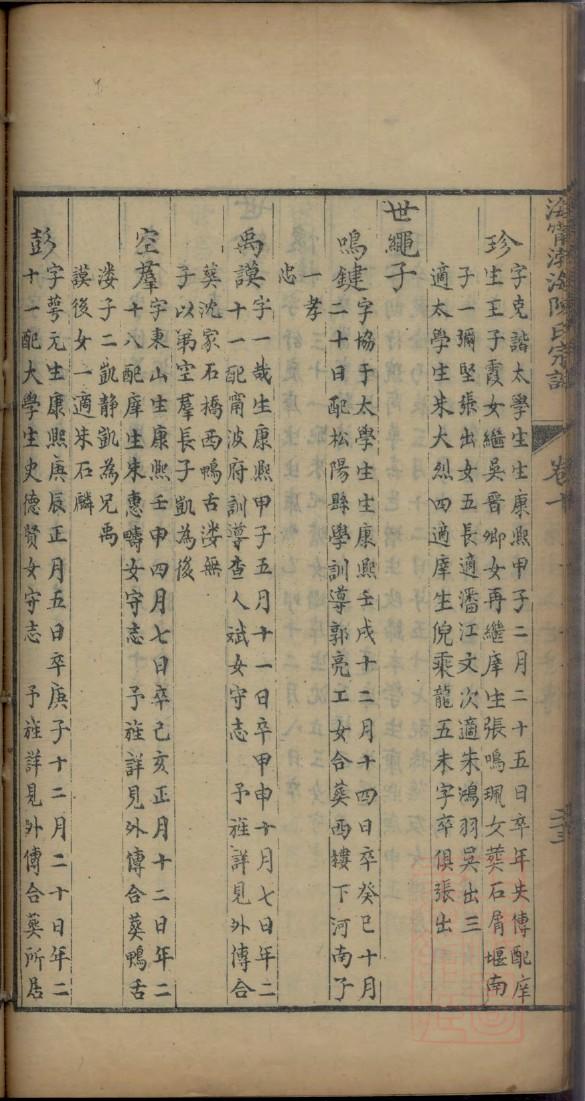 海寧渤海陳氏宗譜
卷十
珍
字克諧太學生生康熙甲子二月二十五日卒年失傳配庠
生王子霞女繼吳晉卿女再繼庠生張鳴珮女葬石屑堰南
子一彌堅張出女五長適潘江文次適朱鴻羽吳出三
適太學生朱大烈四適庠生倪乘龍五未字卒俱張出
世繩子
鳴鍵
字協于太學生生康熙壬戌十二月十四日卒癸巳十月
二十日配松陽縣學訓導郭亮工女合葬西摟下河南子
一孝
忠
禹謨
字一哉生康熙甲子五月十一日卒甲申十月七日年二
十一配甯波府訓導查人斌女守志 予旌詳見外傳合
葬沈家石橋西鴨舌漊無
子以弟空羣長子凱為後
空羣
字東山生康熙壬申四月七日卒己亥正月十二日年二
十八配庠生朱惠疇女守志 予旌詳見外傳合葬鴨舌
漊子二凱靜凱為兄禹
謨後女一適朱石麟
彭
字萼元生康熙庚辰正月五日卒庚子十二月二十日年二
十一配大學生史德賢女守志 予旌詳見外傳合葬所居